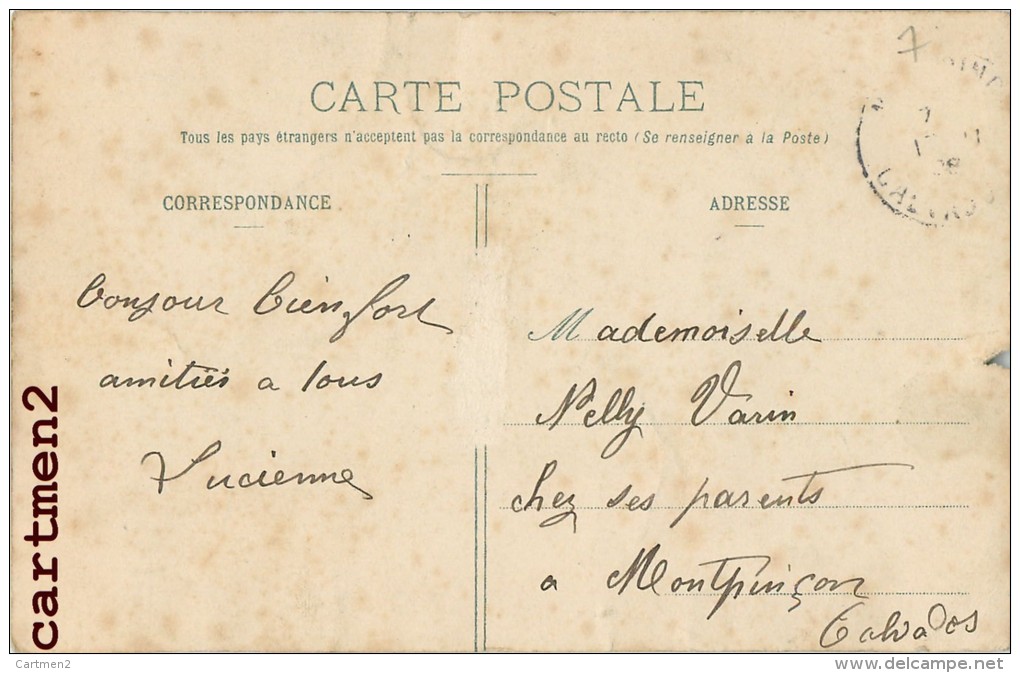 7
CARTE POSTALE
Tous les pays étrangers n'acceptent pas la correspondance au recto (Se renseigner à la Poste)
CORRESPONDANCE
ADRESSE
bonjour bien fort
amitiés a tous
Lucienne
Mademoiselle
Nelly Varin
chez ses parents
a Montpinçon
Calvados
cartmen2
Cartmen2
www.delcampe.net